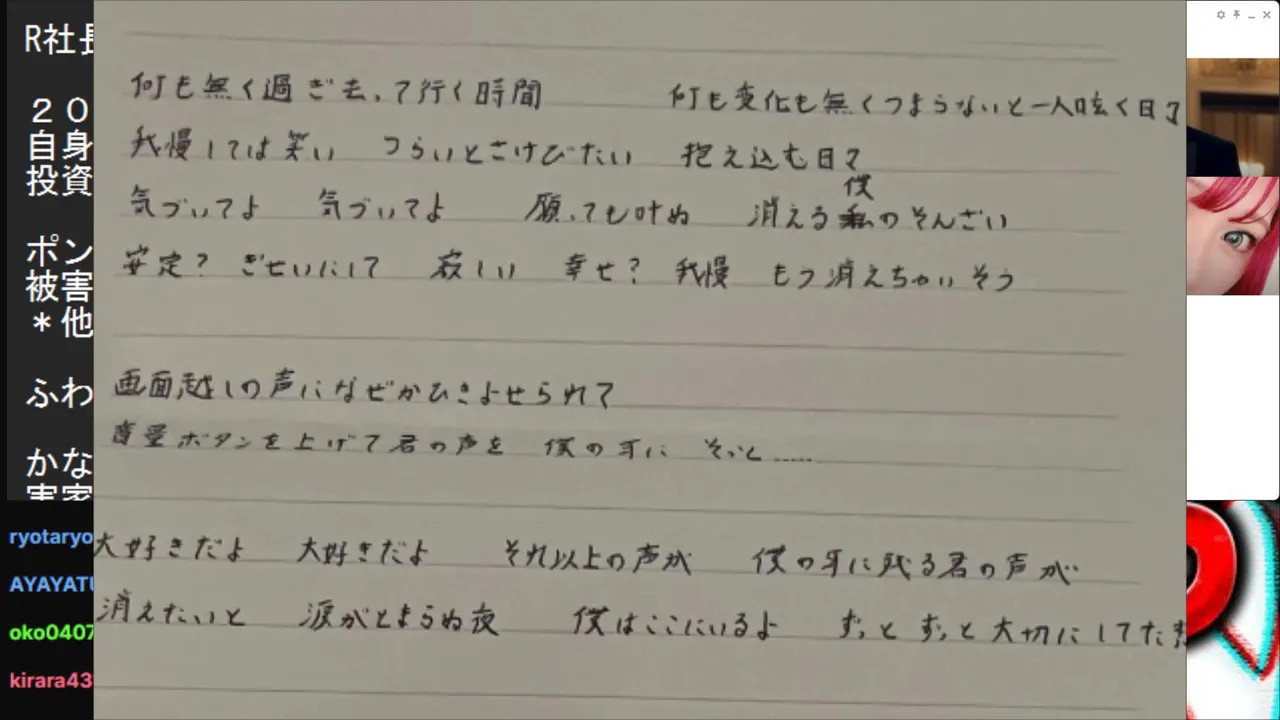 R社長
２０
自身
投資
ポン
被害
＊他
ふわ
かな
実家
ryotaryo
AYAYATU
oko0407
kirara43
何も無く過ぎ去って行く時間　何も変化も無くつまらないと一人呟く日々
我慢しては笑い　つらいとさけびたい　抱え込む日々
気づいてよ　気づいてよ　願っても叶ぬ　消える僕のそんざい
安定？　ぎせいにして　寂しい　幸せ？　我慢　もう消えちゃいそう
画面越しの声になぜかひきよせられて
音量ボタンを上げて君の声を　僕の耳に　そっと……
大好きだよ　大好きだよ　それ以上の声が　僕の耳に残る君の声が
消えたいと　涙がとまらぬ夜　僕はここにいるよ　ずっと ずっと 大切にしてた